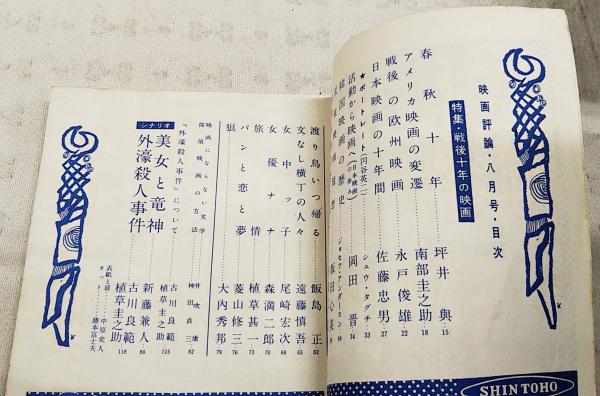 映画評論・八月号・目次
特集・戦後十年の映画
春秋十年 坪井與 15
アメリカ映画の変遷 南部圭之助 18
戦後の欧州映画 永戸俊雄 22
日本映画の十年間 佐藤忠男 27
★ポートレート(円谷英二) シュウ・タグチ 33
活動から映画へ(日本映画の歩み) 岡田晋 34
韓国映画の歴史 ジョセフアンダースン
飯田心美
渡り鳥いつ帰る 飯島正 62
文なし横丁の人々 遠藤慎吾 65
女中ッ子 尾崎宏次 68
女優ナナ 森満二郎 70
旅情 植草甚一 73
パンと恋と夢 菱山修三 76
狼 大内秀邦 79
映画にならない文学 井吹康三 82
探偵映画の方法 神田貞三
「外濠殺人事件」について 古川良範 植草圭之助 115
シナリオ
美女と竜神 新藤兼人 86
外濠殺人事件 古川良範 植草圭之助 118
表紙と扉 中原史人
カット 勝本富士夫
SHINTOHO